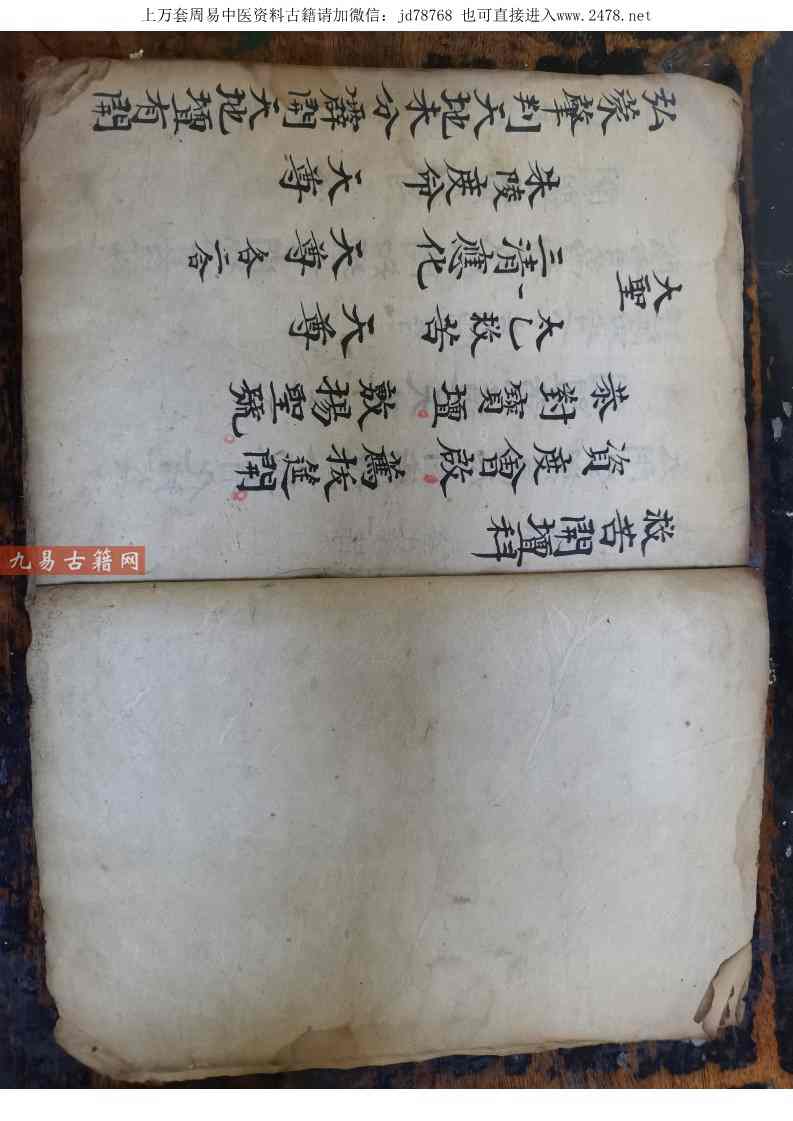 上万套周易中医资料古籍请加微信：jd78768 也可直接进入www.2478.net
救苦開壇科
資度會啟薦拔筵開
恭對寶壇敷揚聖號
大聖
太乙救苦天尊
三清應化天尊各二合
朱陵度命天尊
弘蒙肇判天地未分澼開天地壇有開
九易古籍网